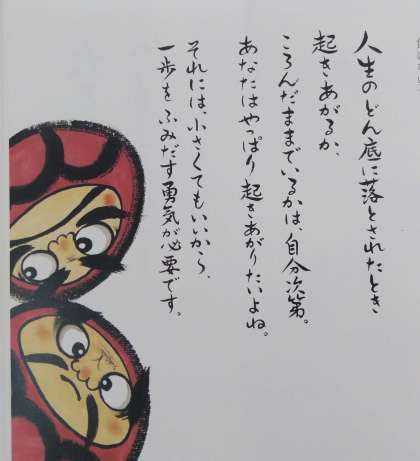 人生のどん底に落とされたとき
起きあがるか、
ころんだままでいるかは、自分次第。
あなたはやっぱり起きあがりたいよね。
それには、小さくてもいいから、
一歩をふみだす勇気が必要です。